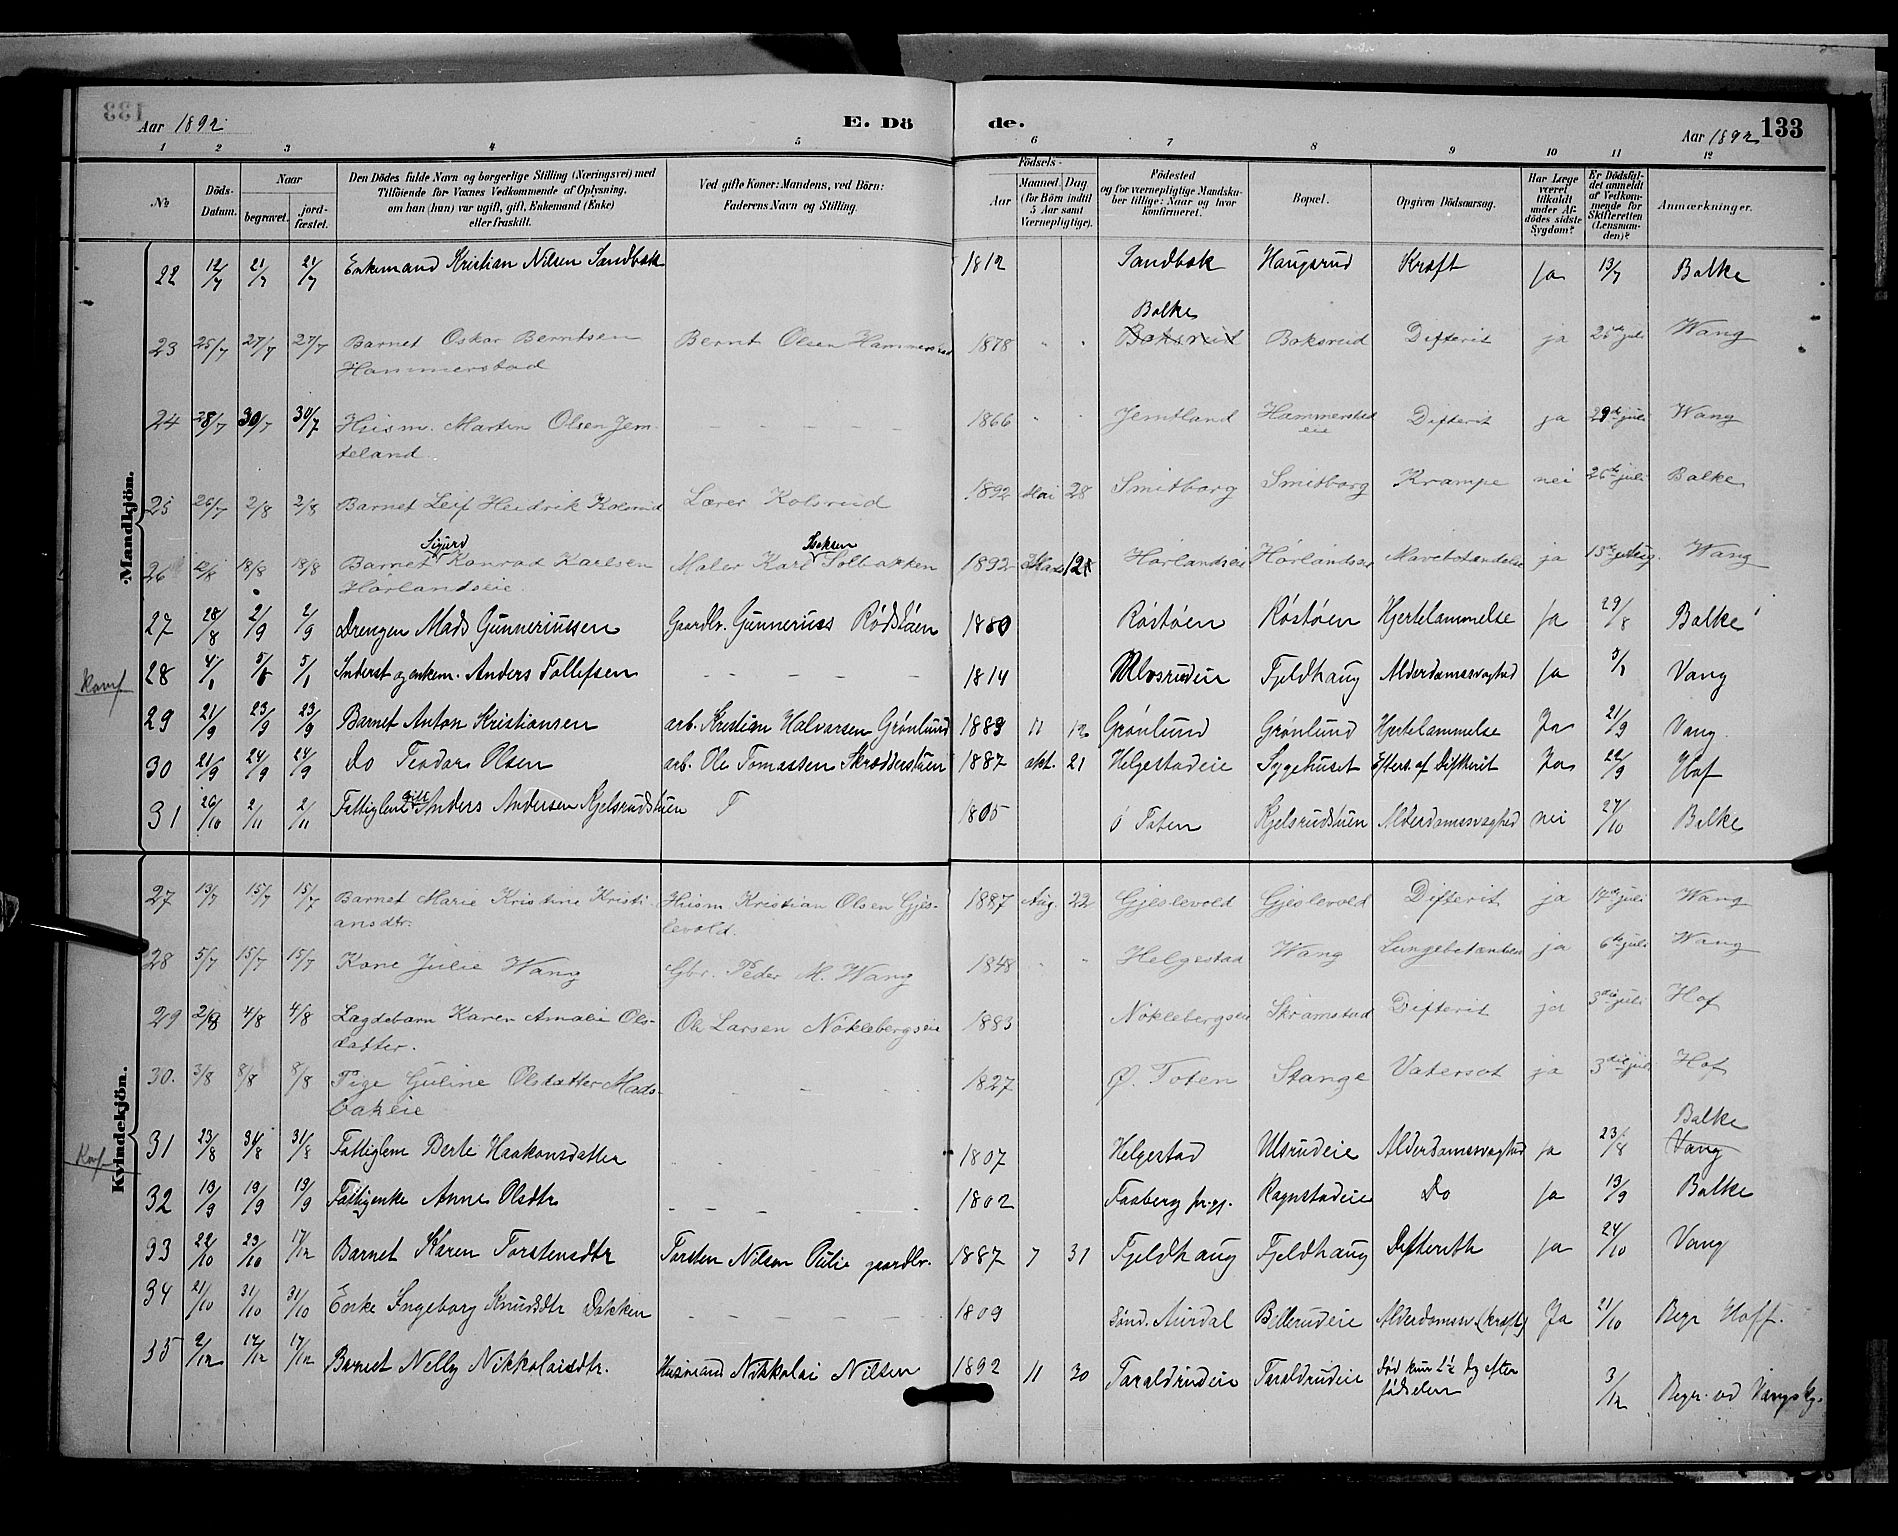 133
Aar 1892. E. Dö de. Aar 1892 133
1 2 3 4 5 6 7 8 9 10 11 12
№ Döds-Datum. Naar begravet. jord-fæstet. Den Dödes fulde Navn og borgerlige Stilling (Næringsvei) med Tilföiende for Voxnes Vedkommende af Oplysning, om han (hun) var ugift, gift, Enkemand (Enke) eller fraskilt. Ved gifte Koner: Mandens, ved Börn: Faderens Navn og Stilling. Födsels- Aar Maaned. Dag (for Börn indtil 5 Aar samt Værnepligtige). Födested og for værnepligtige Mandskaber tillige: Naar og hvor konfirmeret. Bopæl. Opgiven Dödsaarsag. Har Læge været tilkaldt under Afdödes sidste Sygdom? Er Dödsfaldet anmeldt af Vedkommende for Skifteretten (Lensmanden)? Anmærkninger.
Mandkjön.
22 12/7 21/7 21/7 Enkemand Kristian Nilsen Sandbak 1812 Sandbak Haugsrud Kræft Ja 13/7 Balke
Balke
23 25/7 27/7 27/7 Barnet Oskar Berntsen Bernt Olsen Hammerstad 1878 " " Baksreid Baksreid Difterit ja 25de juli Wang
Hammerstad
24 28/7 30/7 30/7 Husm. Martin Olsen Jem- – – – – – 1866 " " Jemtland Hammerstad Difterit ja 29de juli Wang
teland. eie
25 26/7 2/8 2/8 Barnet Leif Heidrik Kolsrud Lærer Kolsrud 1892 Mai 28 Smitborg Smitborg Krampe nei 26de juli Balke
Sigurd Isaksen
26 12/8 18/8 18/8 Barnet Konrad Karlsen Maler Karl Solbakken 1892 Mars 12 Hørlandseie Hørlandseie Mavebetændelse ja 15de Aug. Wang
Hørlandseie.
27 28/8 2/9 2/9 Drengen Mads Gunneriussen Gaardbr. Gunnerius Rødstøen 1880 Røstøen Røstøen Hjertelammelse Ja 29/8 Balke
Konf
28 Inderst og enkem. Anders Tollefsen – – – – 1814 Ulvsrudeie Fjeldhaug Alderdomssvaghed Ja Vang
29 21/9 23/9 23/9 Barnet Anton Kristiansen arb. Kristian Halvorsen Grønlund 1889 11 12 Grønlund Grønlund Hjertelammelse Ja 21/9 Vang.
30 21/9 24/9 24/9 Do Teodor Olsen arb. Ole Tomassen Skræddersstuen 1887 okt. 21 Helgestadeie Sygehuset Efters. af Difterit Ja 22/9 Hof
31 26/10 2/11 2/11 Fattiglem gift Anders Andersen Kjelsrudstuen 1805 Ø Toten Kjelsrudstuen Alderdomssvaghed nei 27/10 Balke
Kvindekjön.
27 13/7 15/7 15/7 Barnet Marie Kristine Kristi- Husm Kristian Olsen Gjes- 1887 Aug. 22 Gjeslevold Gjeslevold Difterit ja 14de juli Wang
ansdtr. levold.
28 5/7 15/7 15/7 Kone Julie Wang Gbr. Peder M. Wang 1848 " " Helgestad Wang Lungebetændelse ja 6te juli Wang
29 2/8 4/8 4/8 Lægdebarn Karen Amalie Ols- Ole Larsen Nøklebergseie 1883 Nøklebergseie Skramstad Difterit ja 3die juli Hof
datter.
30. 3/8 8/8 8/8 Pige Guline Olsdatter Mads- – – – 1827 Ø. Toten Stange Vatersot ja 3die juli Hof
bakeie
Balke
Konf
31 23/8 31/8 31/8 Fattiglem Berte Haakonsdatter 1807 Helgestad Ulsrudeie Alderdomssvaghed ja 23/8 Vang
32 13/9 19/9 19/9 Fattigenke Anne Olsdtr – – – – 1802 Faaberg pr.gj. Ragnstadeie Do ja 19/9 Balke
33 22/10 29/10 17/12 Barnet Karen Torstensdtr Torsten Nilsen Pulie gaardbr. 1887 7 31 Fjeldhaug Fjeldhaug Difterith ja 24/10 Vang
34 21/10 31/10 31/10 Enke Ingeborg Knudsdtr Dokken – – – – 1809 Sønd. Aurdal Billerudeie Alderdomssv. (kræft) Ja 21/10 Begr Hoff.
35 2/12 17/12 17/12 Barnet Nelly Nikkolaisdtr. Husmand Nikkolai Nilsen 1892 11 30 Taraldrudeie Taraldrudeie død kun 1½ Dg efter 3/12 Begr. ved Vangskg.
fødselen